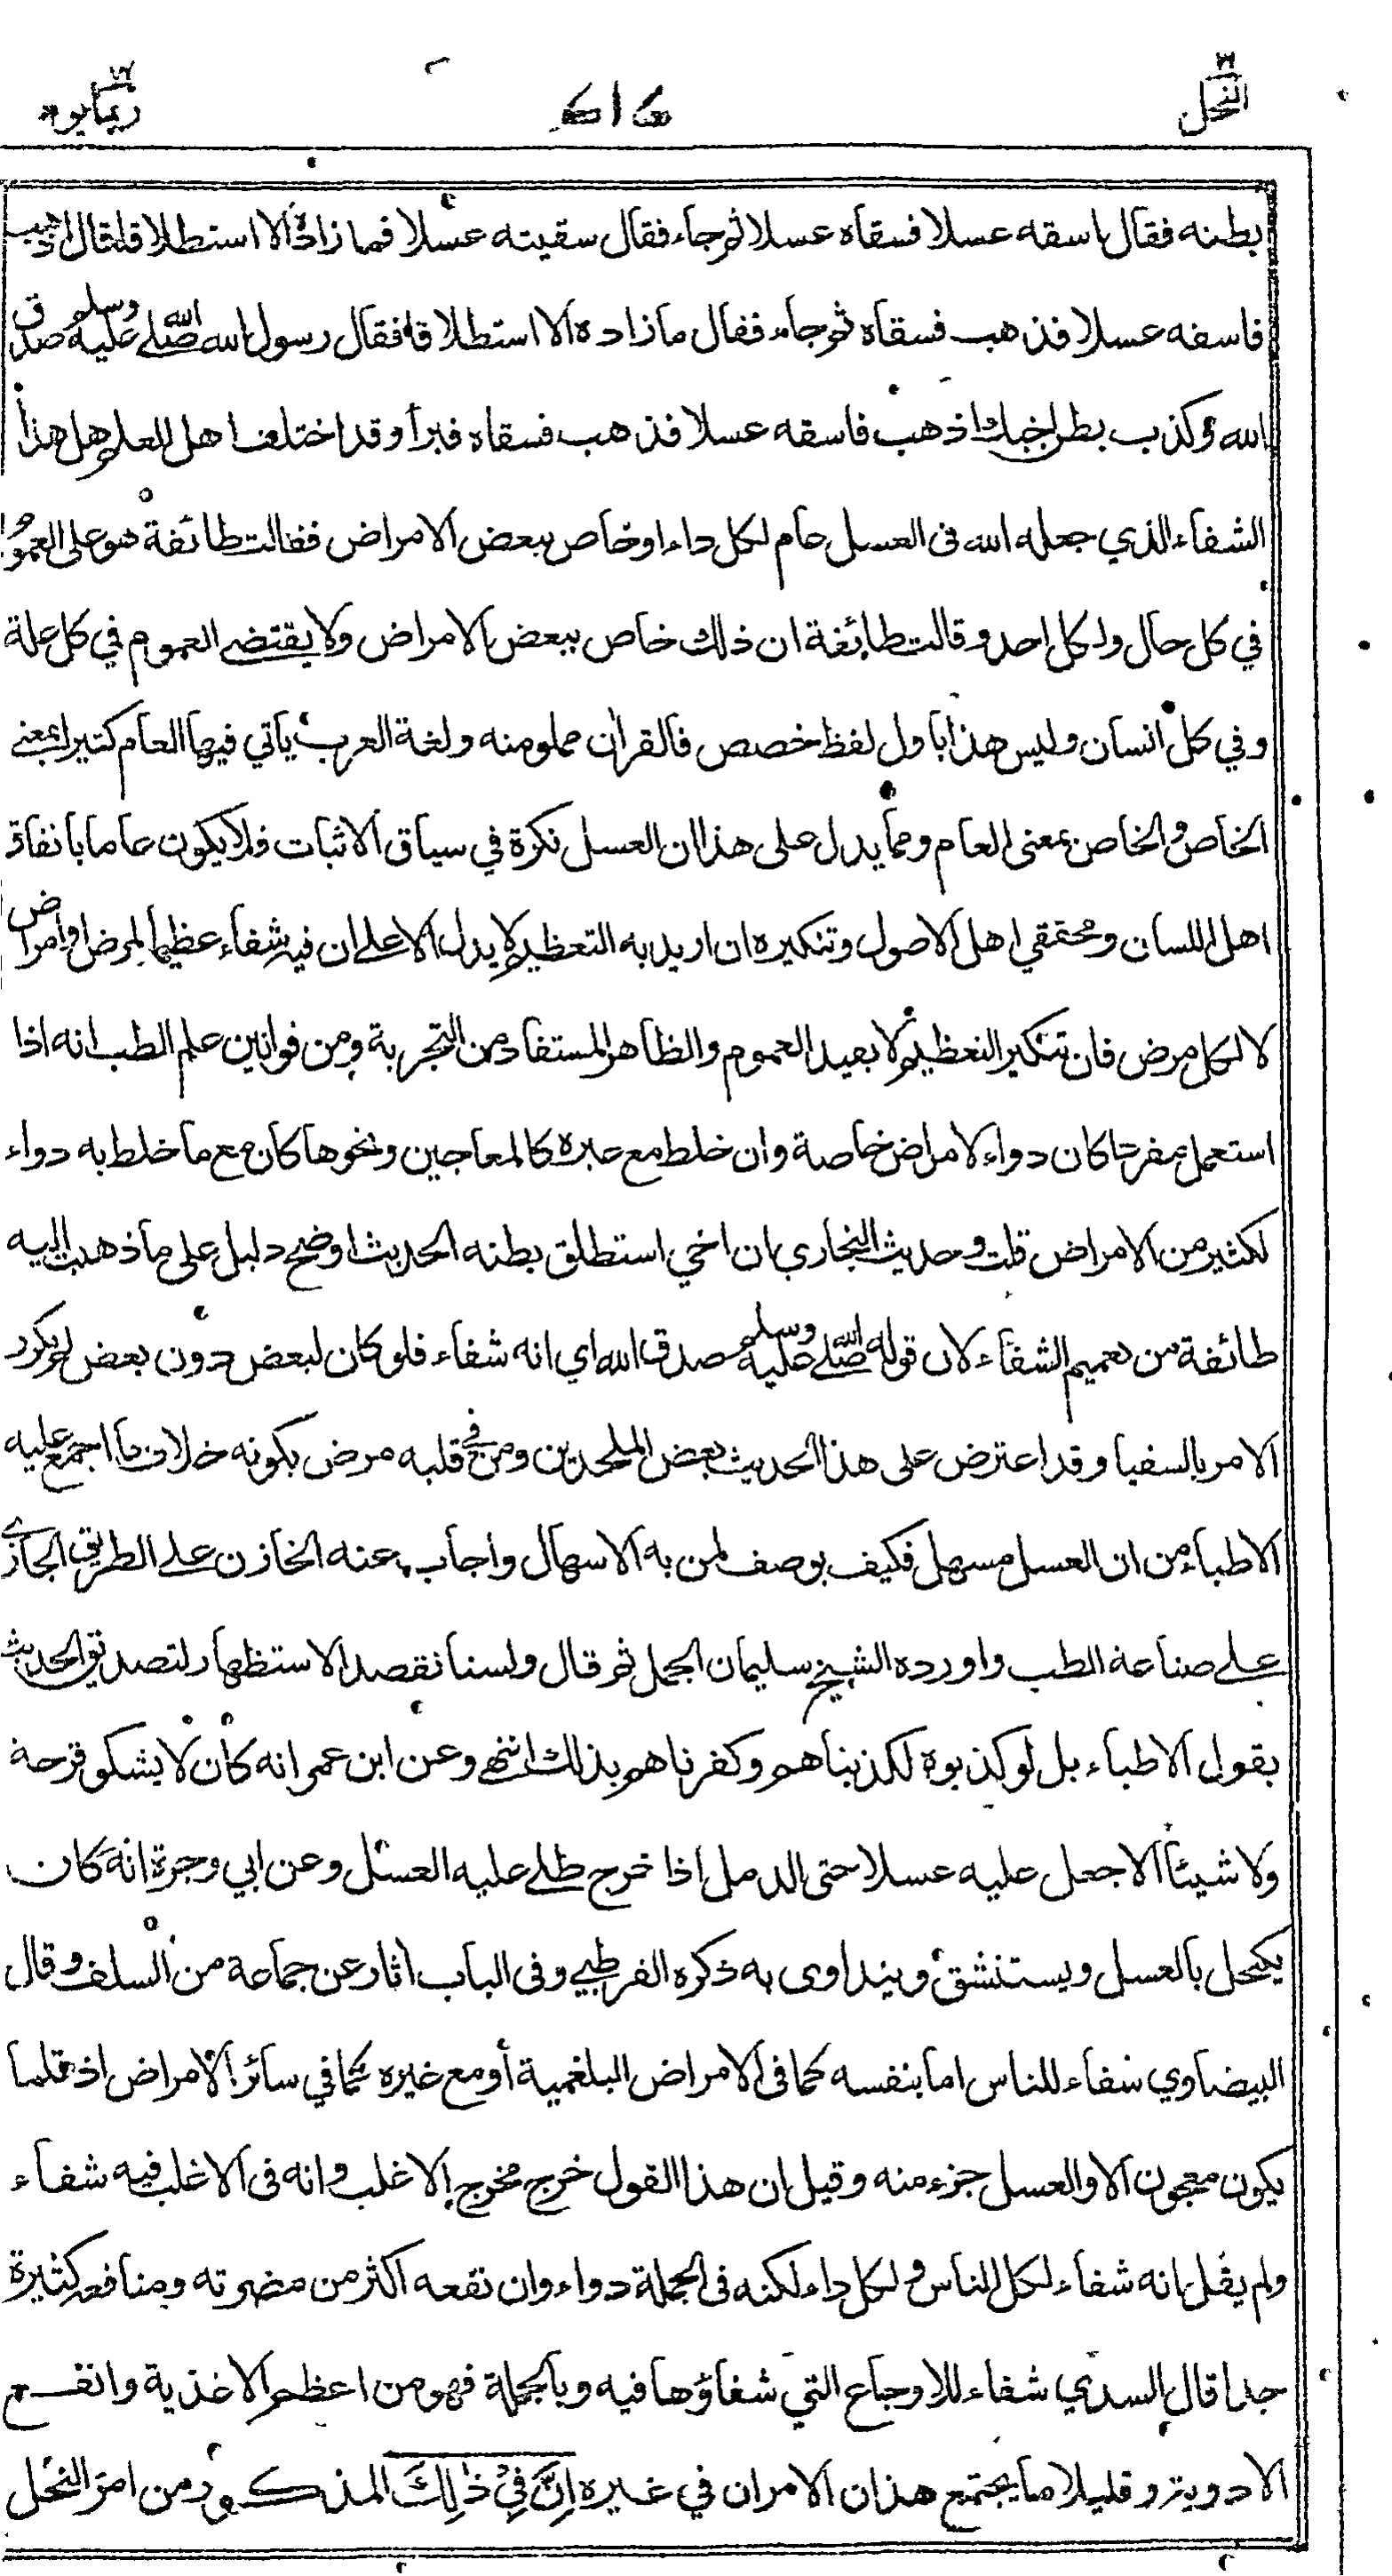 النحل ١٦
٦١٦
ربما ١٤
بطنه فقال اسقه عسلا فسقاه عسلا ثم جاء فقال سقيته عسلا فما زاده الا استطلاقا قال اذهب
فاسقه عسلا فذهب فسقاه ثم جاء فقال ما زاده الا استطلاقا فقال رسول الله صلى الله عليه وسلم صدق
الله وكذب بطن اخيك اذهب فاسقه عسلا فذهب فسقاه فبرأ وقد اختلف اهل العلم هل هذا
الشفاء الذي جعله الله فى العسل عام لكل داء او خاص ببعض الامراض فقالت طائفة هو على العموم
في كل حال ولكل احد وقالت طائفة ان ذلك خاص ببعض الامراض ولا يقتضى العموم في كل علة
وفي كل انسان وليس هذا باول لفظ خصص فالقران مملو منه ولغة العرب ياتي فيها العام كثيرا بمعنى
الخاص والخاص بمعنى العام ومما يدل على هذا ان العسل نكرة في سياق الاثبات فلا يكون عاما باتفاق
اهل اللسان ومحققي اهل الاصول وتنكيره ان اريد به التعظيم لا يدل الا على ان فيه شفاء عظيما لمرض او امراض
لا لكل مرض فان تنكير التعظيم لا يفيد العموم والظاهر المستفاد من التجربة ومن قوانين علم الطب انه اذا
استعمل مفردا كان دواء لامراض خاصة وان خلط مع غيره كالمعاجين ونحوها كان مع ما خلط به دواء
لكثير من الامراض قلت وحديث البخاري ان اخي استطلق بطنه الحديث اوضح دليل على ما ذهبت اليه
طائفة من تعميم الشفاء لان قوله صلى الله عليه وسلم صدق الله اي انه شفاء فلو كان لبعض دون بعض لم يكرر
الامر بالسقيا وقد اعترض على هذا الحديث بعض الملحدين ومن في قلبه مرض بكونه خلاف ما اجمع عليه
الاطباء من ان العسل مسهل فكيف يوصف لمن به الاسهال واجاب عنه الخازن على الطريق الجاري
على صناعة الطب واورده الشيخ سليمان الجمل ثم قال ولسنا نقصد الاستظهار لتصديق الحديث
بقول الاطباء بل لو كذبوه لكذبناهم وكفرناهم بذلك انتهى وعن ابن عمر انه كان لا يشكو قرحة
ولا شيئا الا جعل عليه عسلا حتى الدمل اذا خرج طلى عليه العسل وعن ابي وجرة انه كان
يكتحل بالعسل ويستنشق ويتداوى به ذكره القرطبي وفى الباب اثار عن جماعة من السلف وقال
البيضاوي شفاء للناس اما بنفسه كما فى الامراض البلغمية أو مع غيره كما في سائر الامراض اذ قلما
يكون معجون الا والعسل جزء منه وقيل ان هذا القول خرج مخرج الاغلب وانه فى الاغلب فيه شفاء
ولم يقل انه شفاء لكل الناس ولكل داء لكنه فى الجملة دواء وان نفعه اكثر من مضرته ومنافعه كثيرة
جدا قال السدي شفاء للاوجاع التي شفاؤها فيه وبالجملة فهو من اعظم الاغذية وانفع
الادوية وقليلا ما يجتمع هذان الامران في غيره إِنَّ فِيْ ذٰلِكَ المذكور من امر النحل